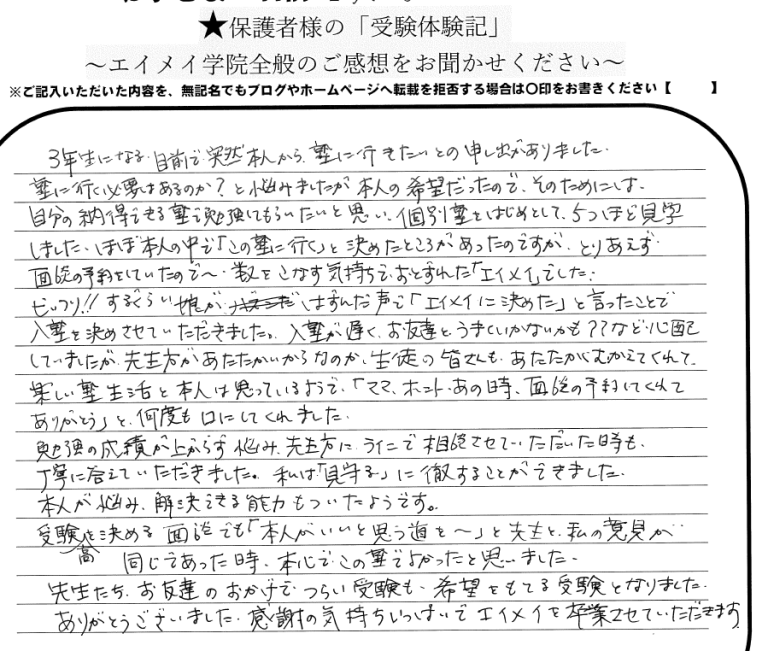 ★保護者様の「受験体験記」
～エイメイ学院全般のご感想をお聞かせください～
※ご記入いただいた内容を、無記名でもブログやホームページへ転載を拒否する場合は〇印をお書きください【　　】
3年生になる目前で突然本人から、塾に行きたいとの申し出がありました。
塾に行く必要はあるのか？と悩みましたが本人の希望だったので、そのためには、
自分の納得できる塾で勉強してもらいたいと思い、個別塾をはじめとして、5つほど見学
しました。ほぼ本人の中で「この塾に行く」と決めたところがあったのですが、とりあえず
面談の予約をしていたので～数をこなす気持ちでおとずれた「エイメイ」でした。
ビックリ!!するぐらい娘がはずんだ声で「エイメイに決めた」と言ったことで
入塾を決めさせていただきました。入塾が遅く、お友達とうまくいかないかも??など心配
していましたが、先生方があたたかいからなのか、生徒の皆さんも、あたたかくむかえてくれて、
楽しい塾生活と本人は思っているようで、「ママ、ホントあの時、面談の予約してくれて
ありがとう」と、何度も口にしてくれました。
勉強の成績が上がらず悩み、先生方に、ラインで相談させていただいた時も、
丁寧に答えていただきました。私は「見守る」に徹することができました。
本人が悩み、解決できる能力もついたようです。
受験高を決める面談でも「本人がいいと思う道を～」と先生と、私の意見が
同じであった時、本心でこの塾でよかったと思いました。
先生たち、お友達のおかげでつらい受験も、希望をもてる受験となりました。
ありがとうございました。感謝の気持ちいっぱいでエイメイを卒業させていただきます